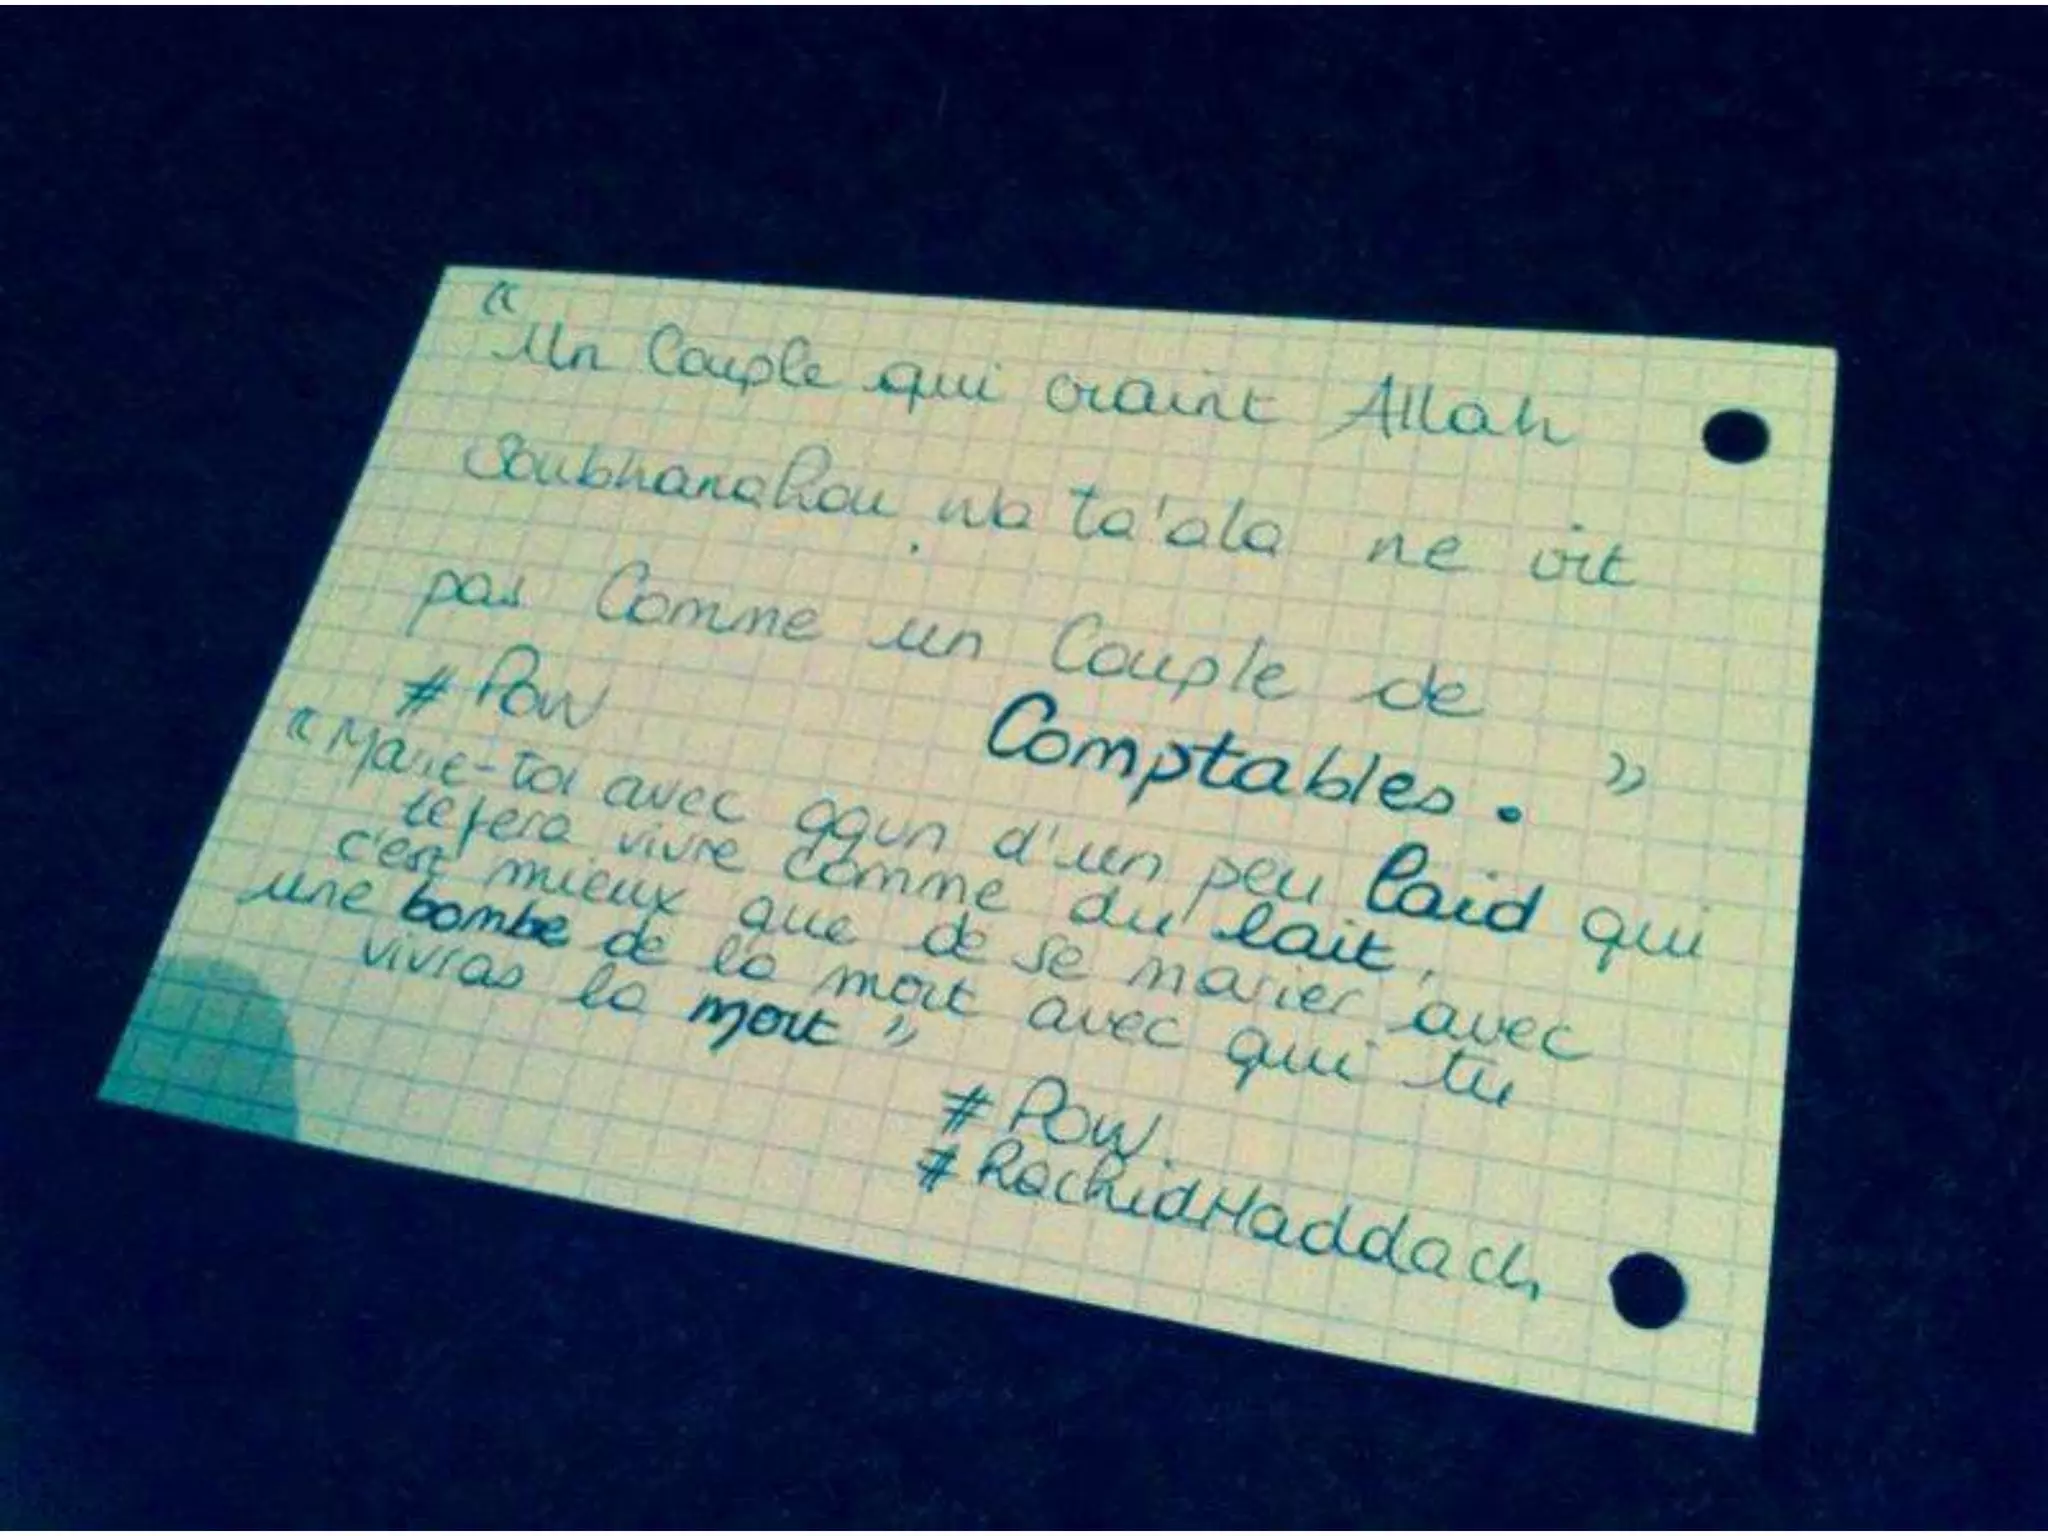 "Un Couple qui craint Allah
Soubhanahou wa ta'ala ne vit
pas Comme un Couple de
Comptables. "
# POW
"Marie-toi avec qqun d'un peu laid qui
te fera vivre comme du lait,
c'est mieux que de se marier avec
une bombe de la mort avec qui tu
vivras la mort"
# POW.
# RachidHaddach